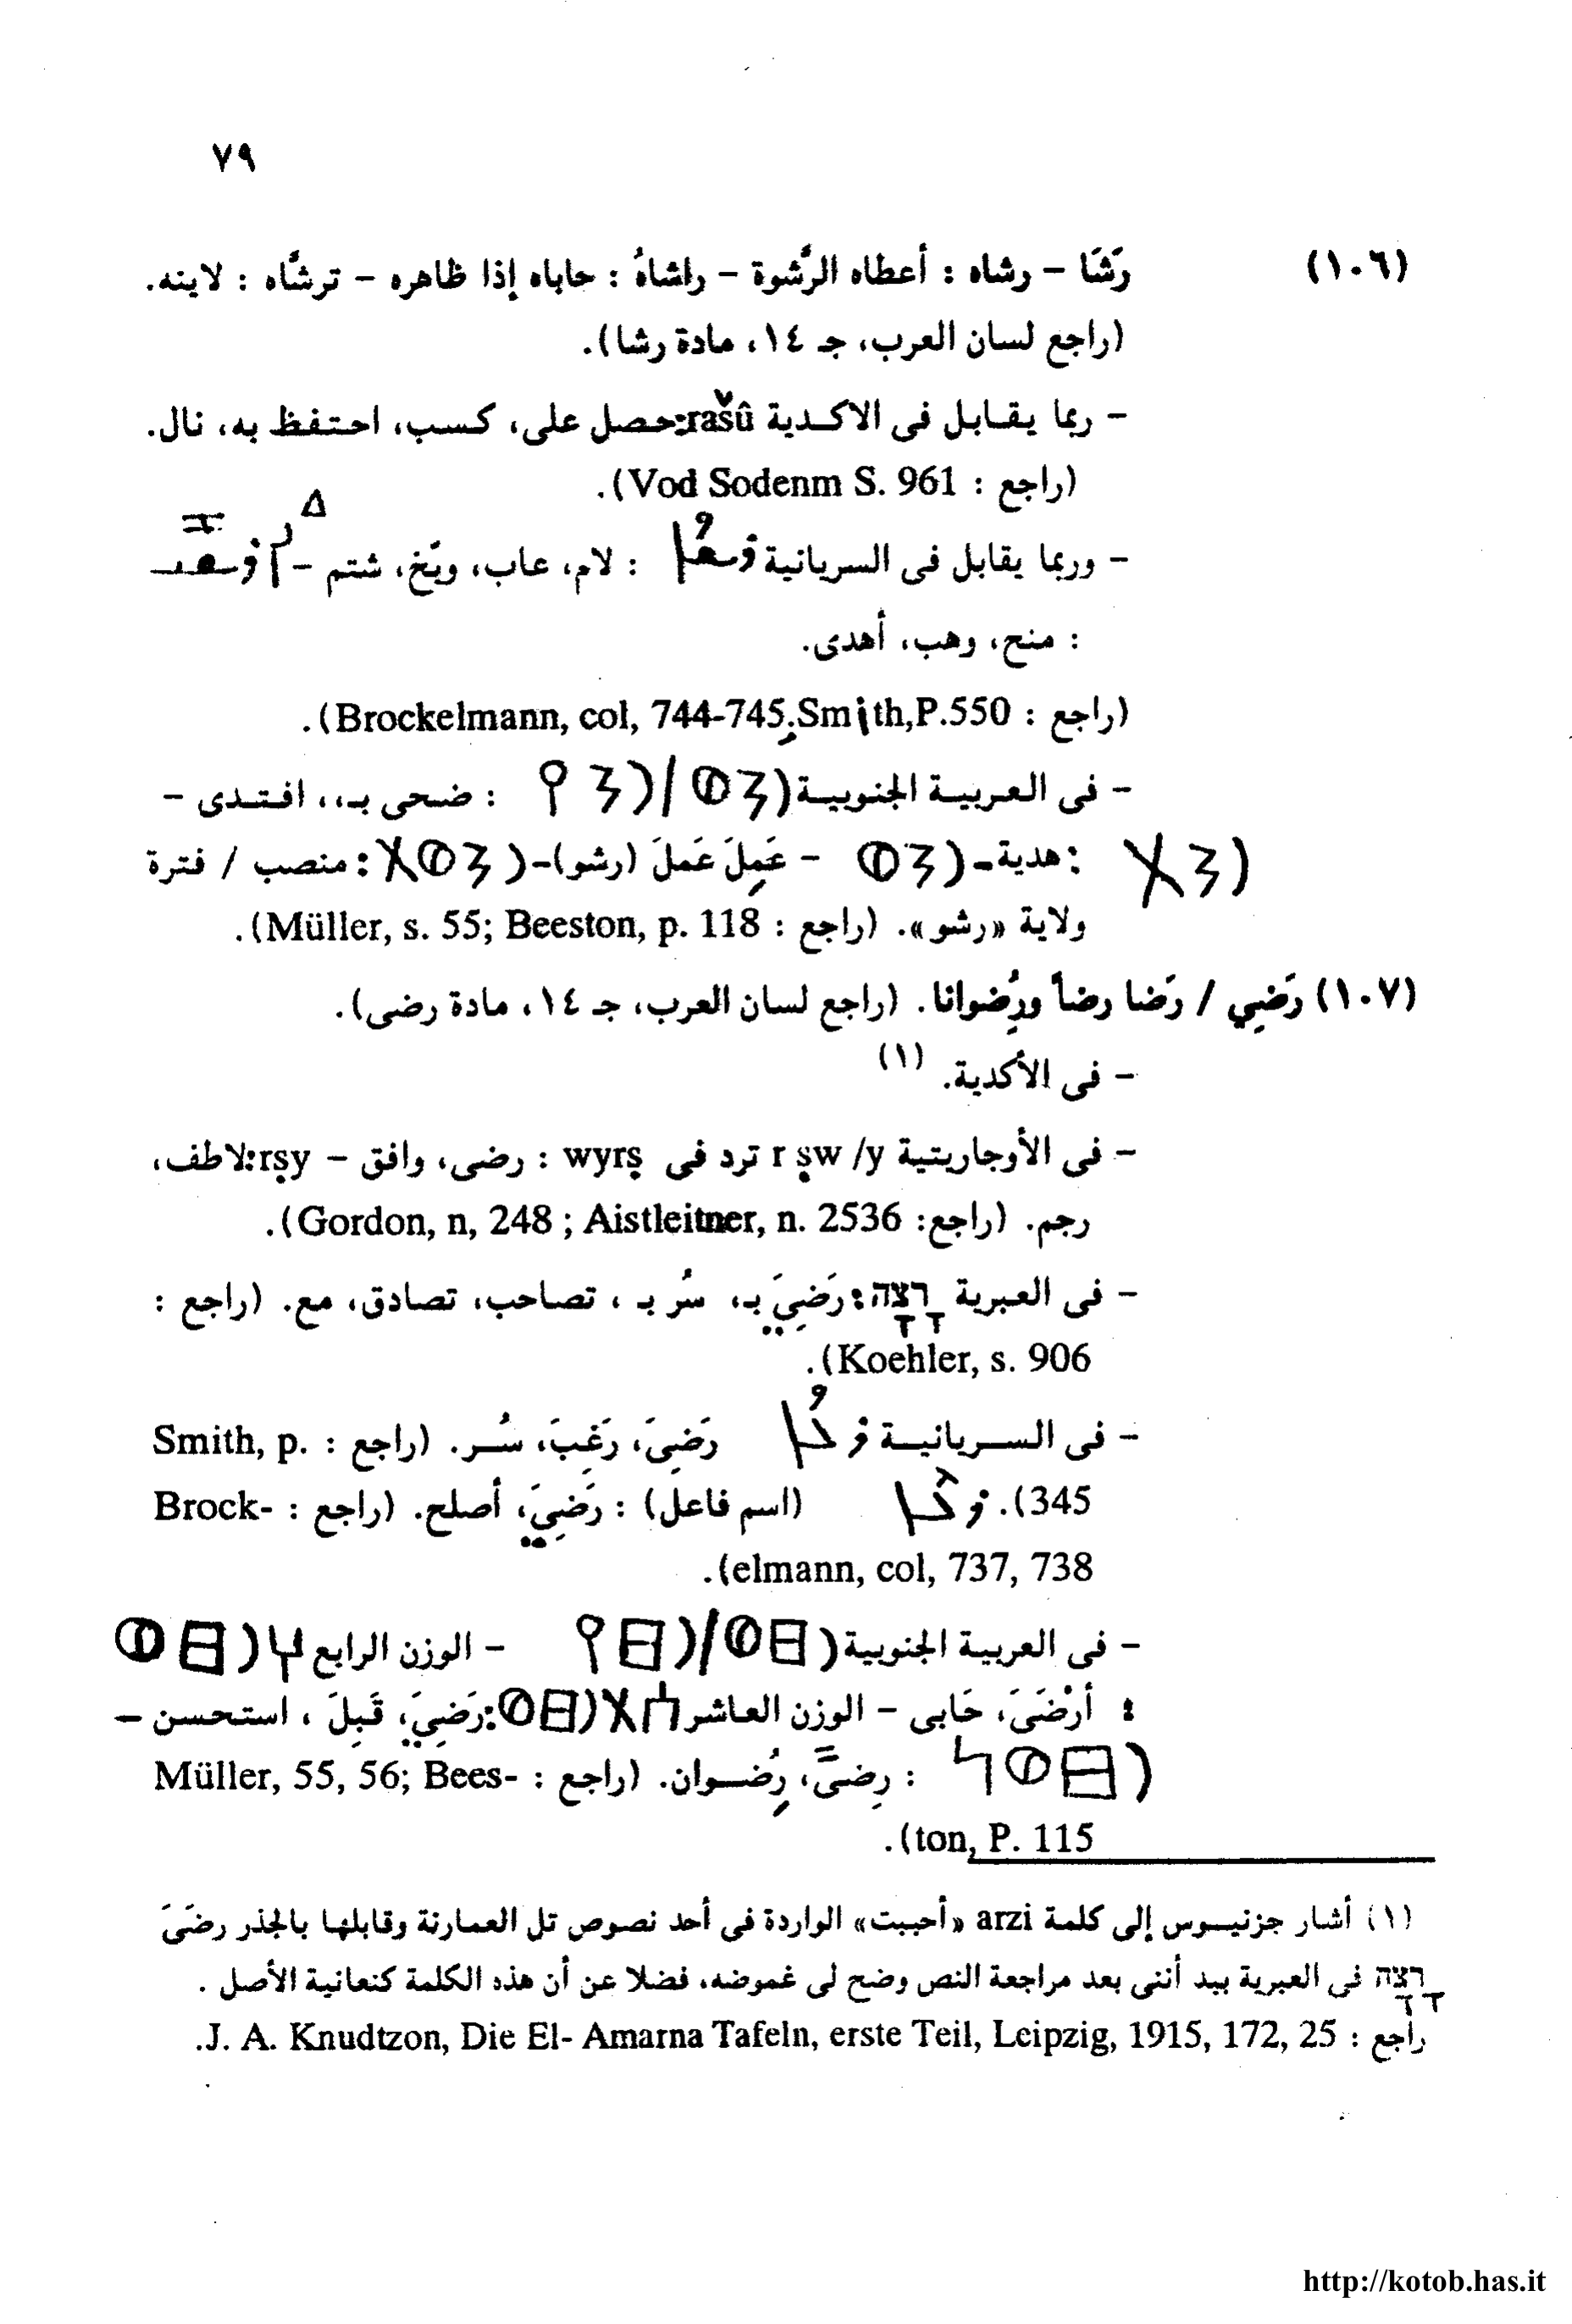 ٧٩
(١٠٦) رَشَا – رشاه : أعطاه الرَّشوة – راشاهُ : حاباه إذا ظاهره – ترشَّاه : لاينه.
(راجع لسان العرب، جـ ١٤، مادة رشا).
– ربما يقابل فى الاكدية rašû: حصل على، كسب، احتفظ به، نال.
(راجع : Vod Sodenm S. 961).
– وربما يقابل فى السريانية ܪܫܐ : لام، عاب، وبّخ، شتم –
: منح، وهب، أهدى.
(راجع : Brockelmann, col, 744-745; Smith,P.550).
– فى العربية الجنوبية 𐩧𐩦𐩥/𐩧𐩦𐩺 : ضحى بـ،، افتدى –
𐩧𐩦𐩩 : هدية – 𐩧𐩦𐩥 – عَمِلَ عَملَ (رشو) – 𐩧𐩦𐩥𐩩 : منصب / فترة
ولاية «رشو». (راجع : Müller, s. 55; Beeston, p. 118).
(١٠٧) رَضِي / رَضا رضاً ورُِضوانا. (راجع لسان العرب، جـ ١٤، مادة رضى).
– فى الأكدية. (١)
– فى الأوجاريتية r ṣw /y ترد فى wyrṣ : رضى، وافق – rṣy: لاطف،
رجم. (راجع: Gordon, n, 248 ; Aistleitner, n. 2536).
– فى العبرية רָצָה: رَضِيَ بـ، سُر بـ ، تصاحب، تصادق، مع. (راجع :
Koehler, s. 906).
– فى السريانية ܪܥܐ رَضِىَ، رَغِبَ، سُر. (راجع : Smith, p.
345). ܪܥܐ (اسم فاعل) : رَضِيَ، أصلح. (راجع : Brock-
elmann, col, 737, 738).
– فى العربية الجنوبية 𐩧𐩳𐩥/𐩧𐩳𐩺 – الوزن الرابع 𐩠𐩧𐩳𐩥
: أرْضَىَ، حَابى – الوزن العاشر 𐩪𐩩𐩧𐩳𐩥: رَضِيَ، قَبِلَ ، استحسن –
𐩧𐩳𐩥𐩬 : رِضىً، رُِضوان. (راجع : Müller, 55, 56; Bees-
ton, P. 115).
(١) أشار جزنيوس إلى كلمة arzi «أحببت» الواردة فى أحد نصوص تل العمارنة وقابلها بالجذر رضَىَ
רָצָה فى العبرية بيد أننى بعد مراجعة النص وضح لى غموضه، فضلا عن أن هذه الكلمة كنعانية الأصل .
راجع : J. A. Knudtzon, Die El- Amarna Tafeln, erste Teil, Leipzig, 1915, 172, 25.
http://kotob.has.it